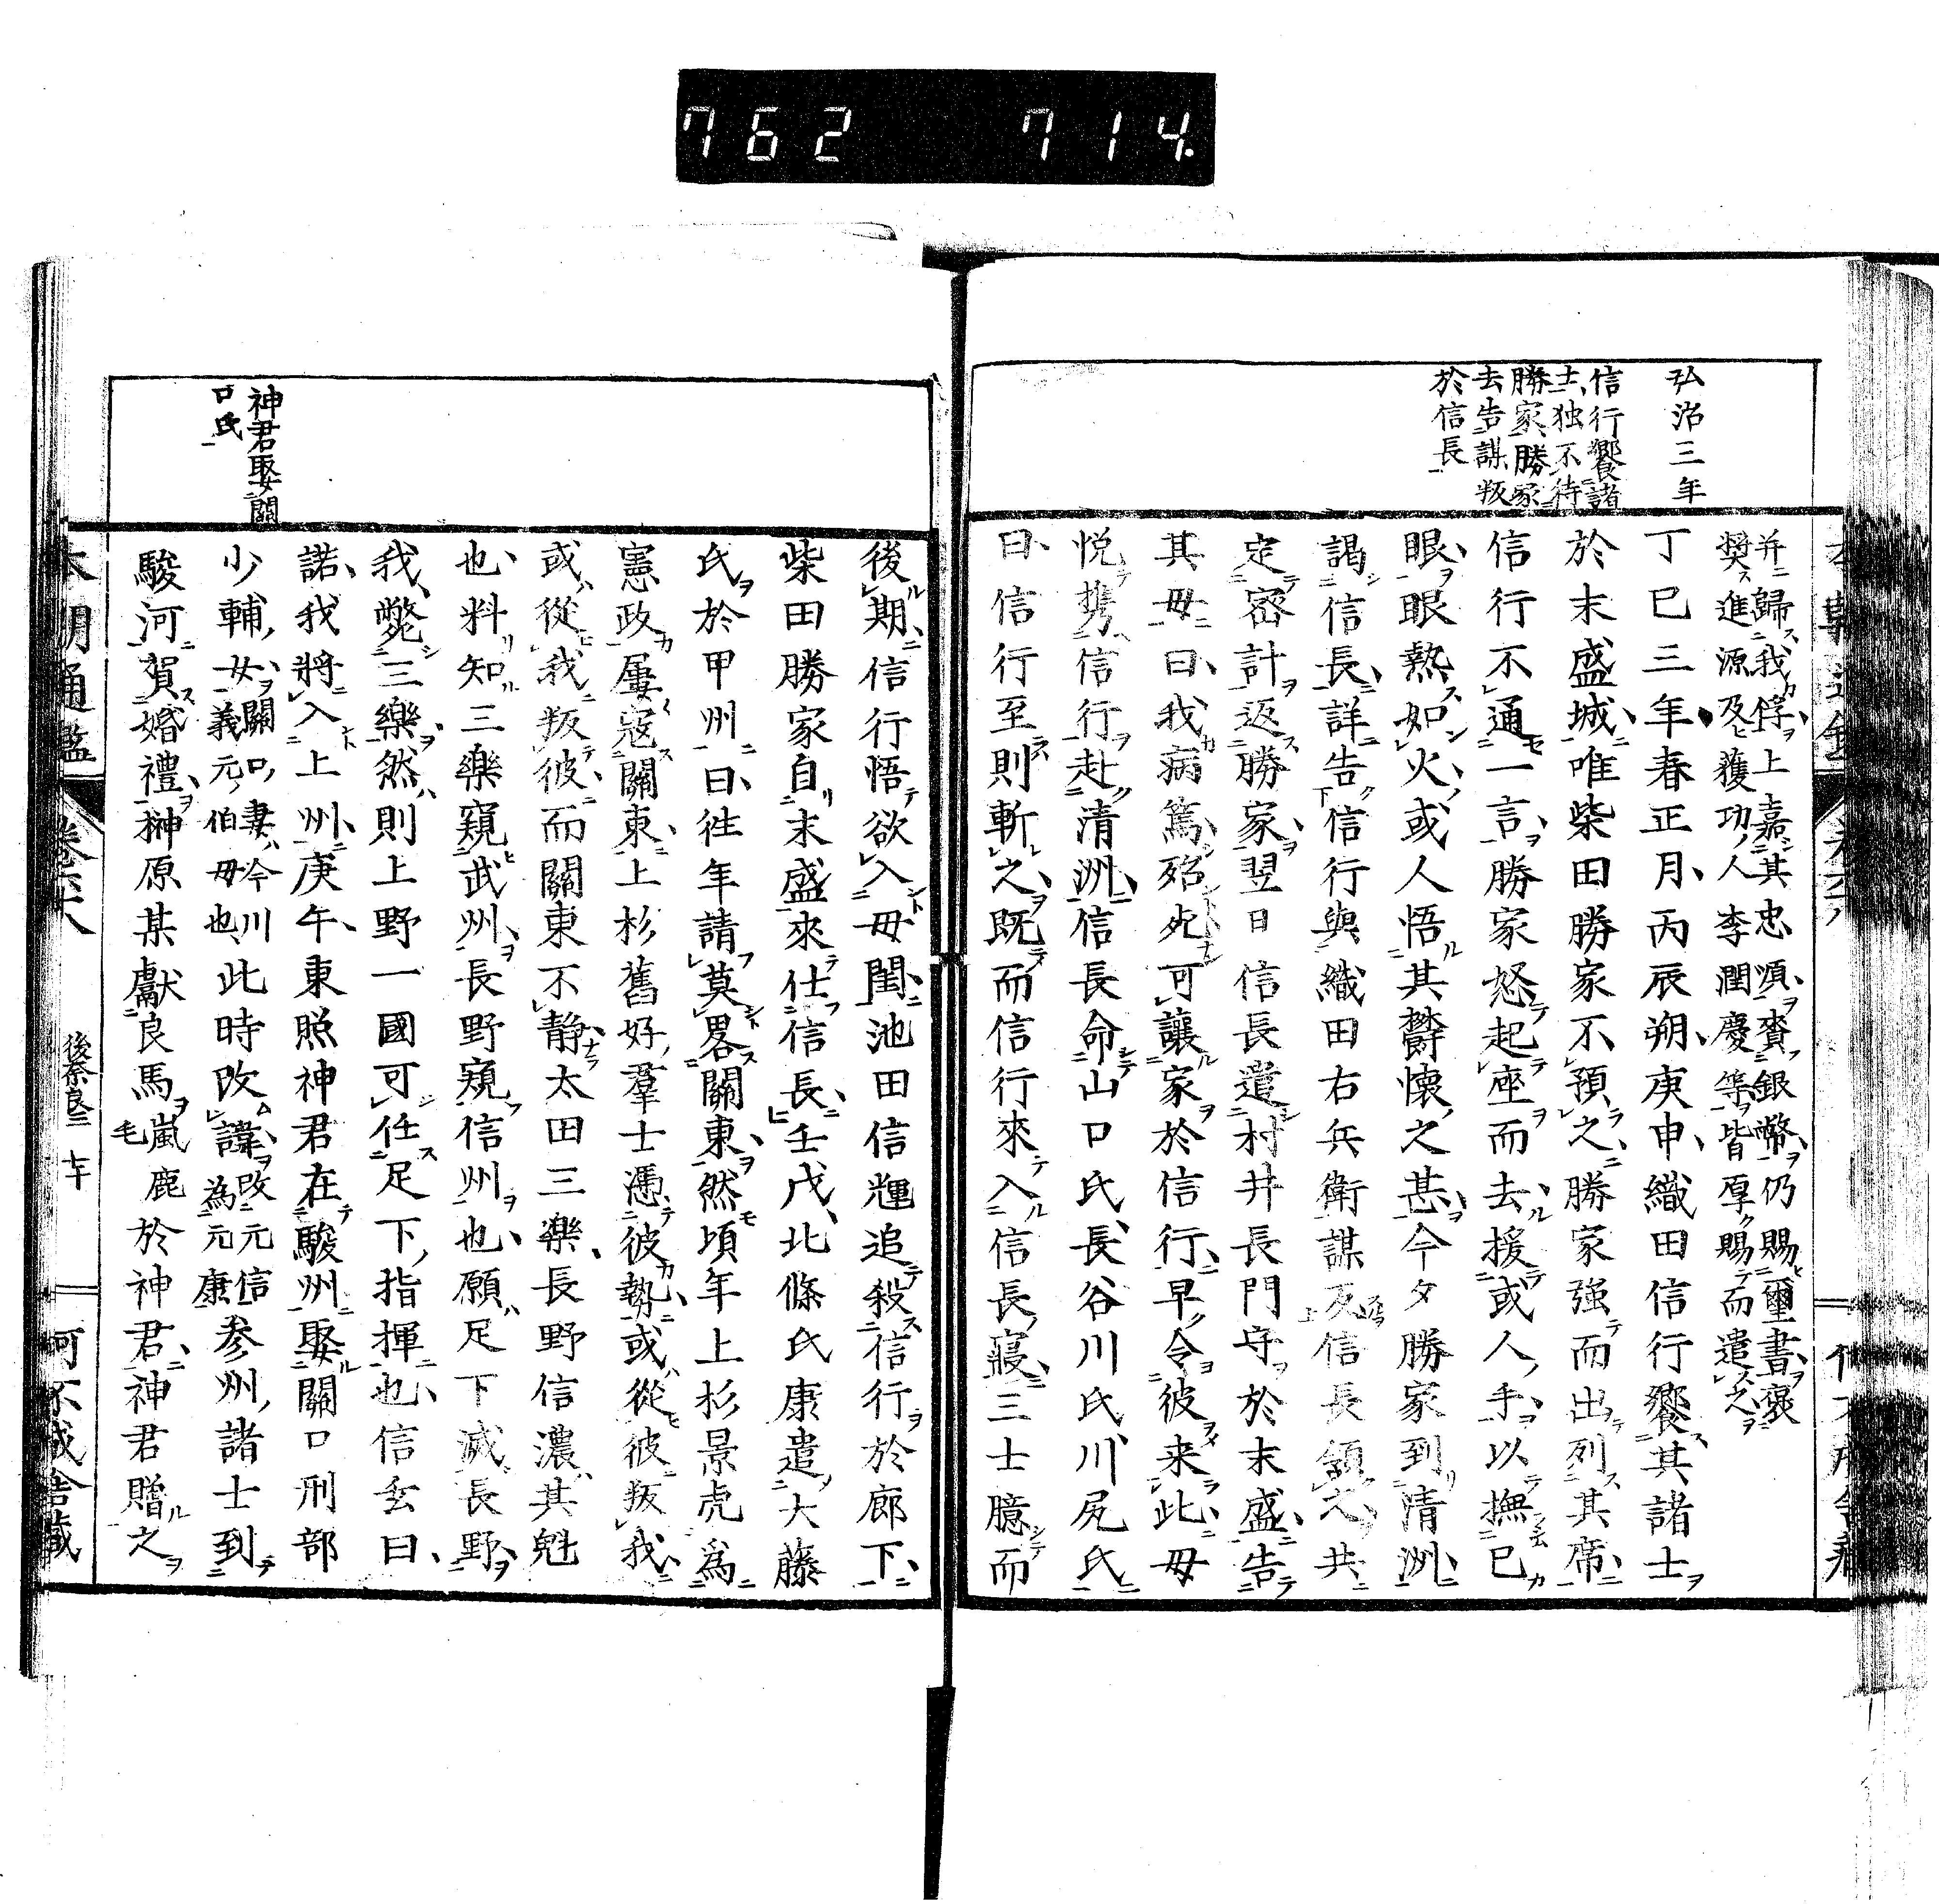 762 714.
弘治三年
信行饗諸
士独不待
勝家勝家
去告謀叛
於信長
并歸我俘上嘉其忠順賚銀幣仍賜璽書褒
奬進源及獲功人李潤慶等皆厚賜而遣之
丁巳三年春正月丙辰朔庚申織田信行饗其諸士
於末盛城唯柴田勝家不預之勝家強而出列其席
信行不通一言勝家怒起座而去援或人手以撫已
眼眼熱如火或人悟其欝懐之甚今夕勝家到清洲
謁信長詳告信行與織田右兵衛謀反信長領之共
定密計返勝家翌日信長遣村井長門守於末盛告
其母曰我病篤殆死可讓家於信行早令彼来此母
悦携信行赴清洲信長命山口氏長谷川氏川尻氏
曰信行至則斬之既而信行來入信長寢三士臆而
後期信行悟欲入母閨池田信輝追殺信行於廊下
柴田勝家自末盛來仕信長壬戌北條氏康遣大藤
氏於甲州曰往年請莫畧關東然頃年上杉景虎爲
憲政屢寇關東上杉舊好羣士憑彼勢或從彼叛我
或從我叛彼而關東不静太田三樂長野信濃其魁
也料知三樂窺武州長野窺信州也願足下滅長野
我斃三樂然則上野一國可任足下指揮也信玄曰
諾我將入上州庚午東照神君在駿州娶關口刑部
少輔女關口妻今川義元伯母也此時改諱改元信為元康参州諸士到
駿河賀婚禮榊原某獻良馬嵐鹿毛於神君神君贈之
神君娶關
口氏
本朝通鑑
後奈良三